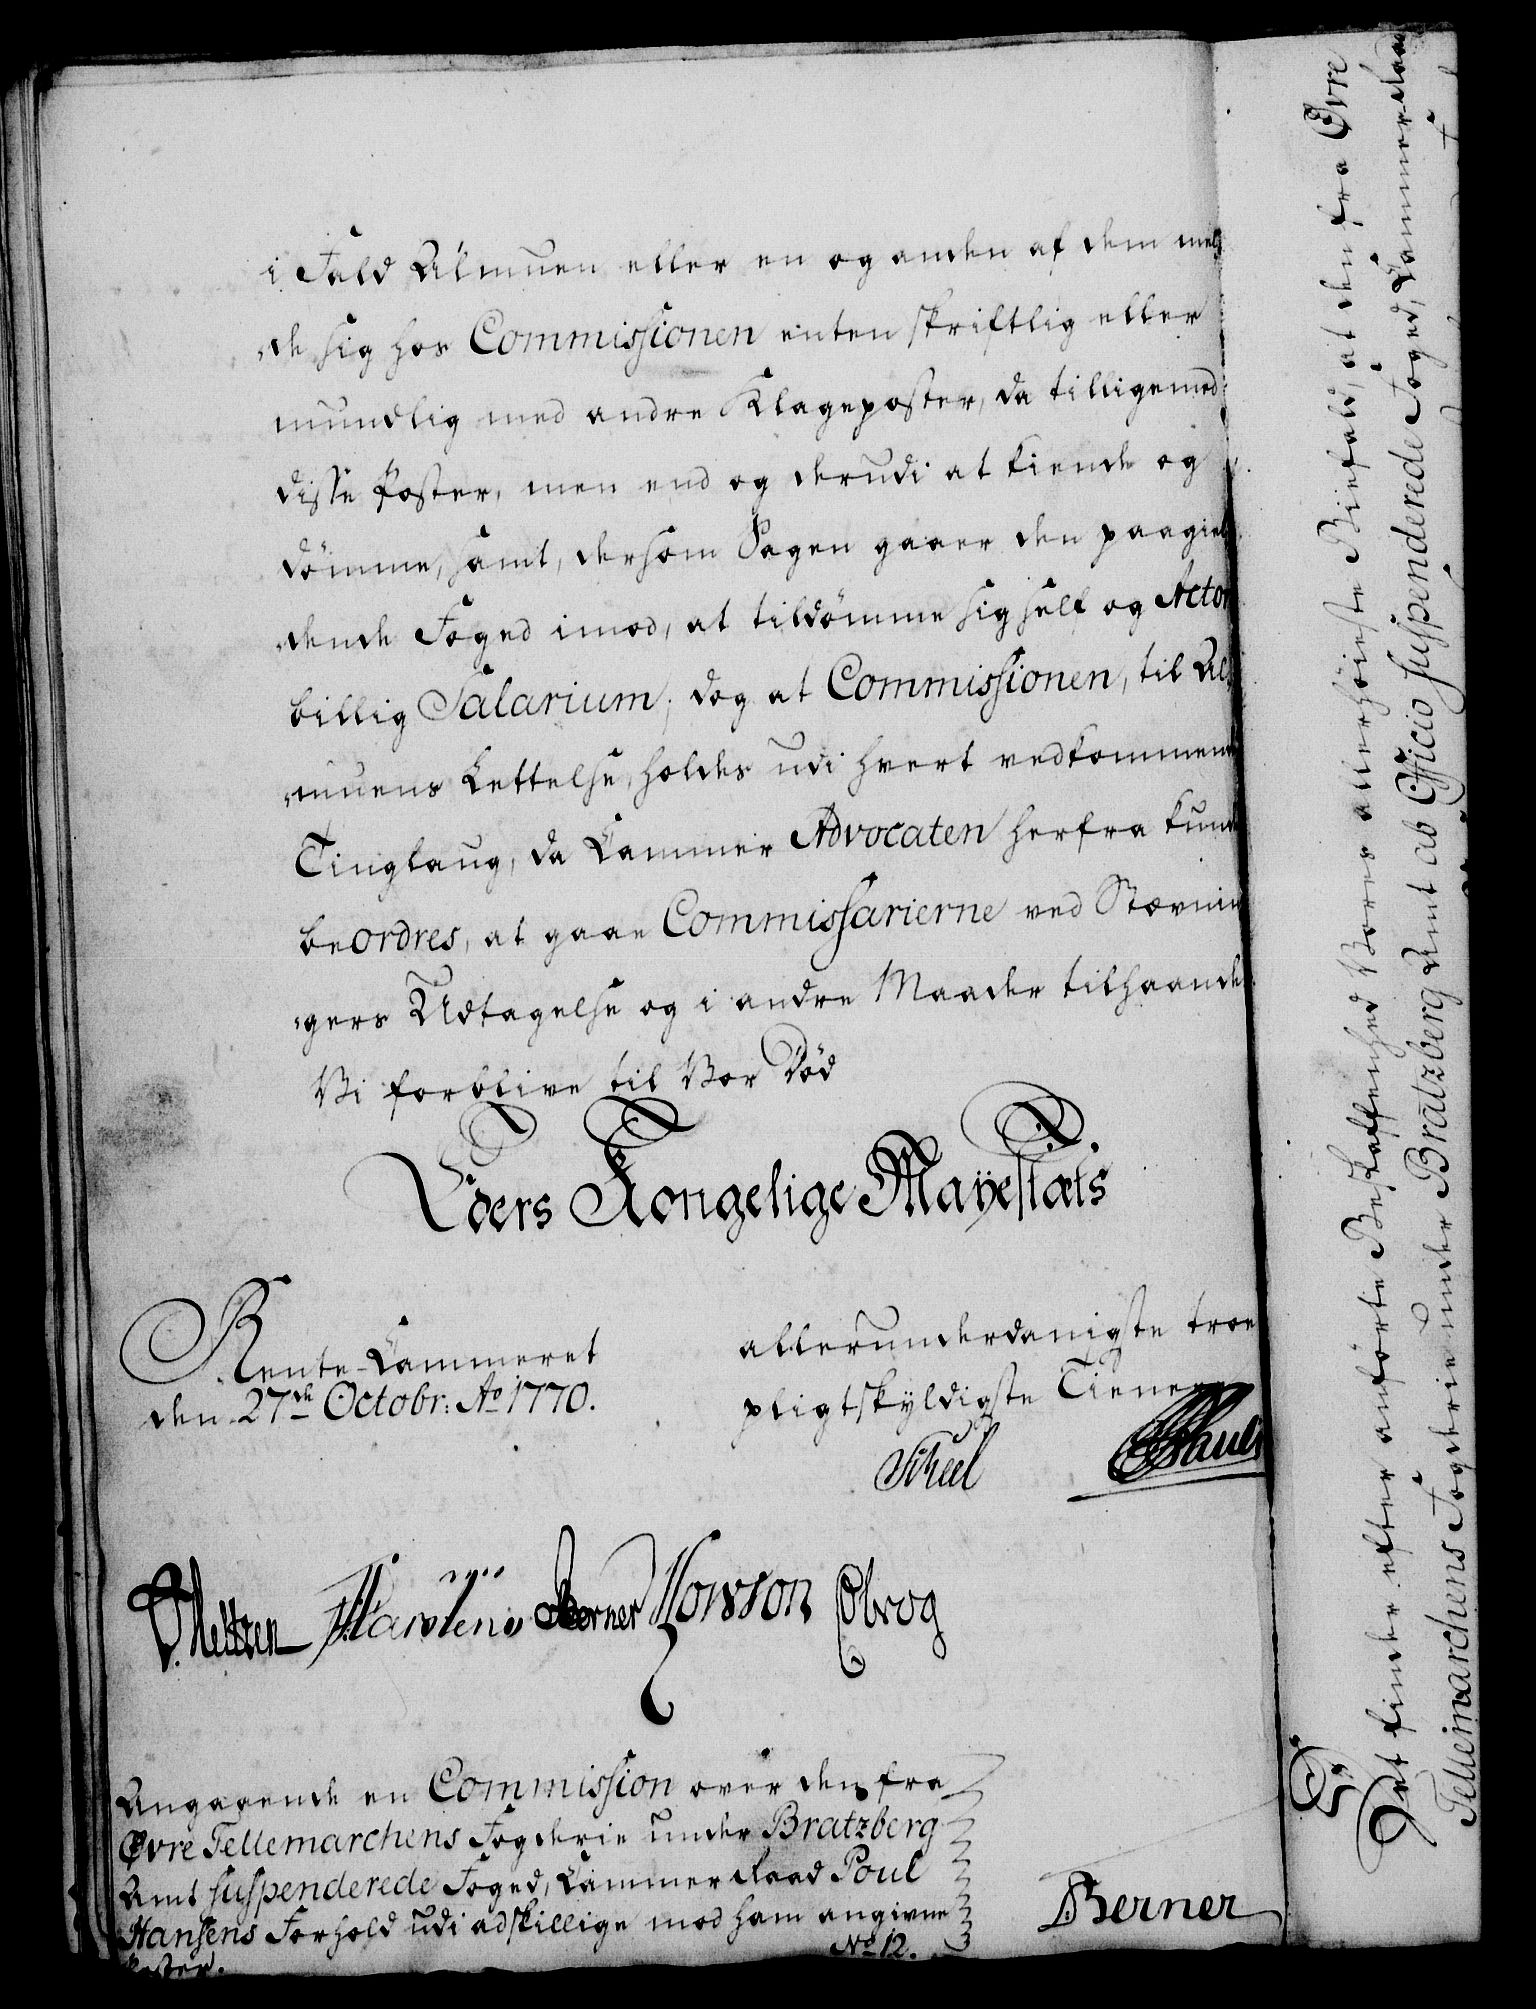 i Fald Almuen eller en og anden af dem mel¬
de sig hos Commissionen enten skriftlig eller
mundlig med andre Klageposter, da tilligemed
disse Poster, men end og derudi at kiende og
dömme, samt, dersom Sagen gaaer den paagiel
dende Foged imod, at tildömme sig self og Actor
billig Salarium; dog at Commissionen, til Al
muens Lettelse, holdes udi hvert vedkommende
Tinglaug, da Cammer Advocaten herfra kunde
beordres, at gaae Commissarierne ved Stævnin
gers Udtagelse og i andre Maader tilhaande.
Vi forblive til Vor Död
Eders Kongelige Mayestæts
Rente-Cammeret
den 27de Octobr: Ao 1770.
allerunderdanigste troe
pligtskyldigste Tienere
Scheel
Berner Kowson Obrog
Angaaende en Commission over den fra
Øvre Tellemarchens Fogderie under Bratzberg
Amt suspenderede Foged, Cammer Raad Poul
Hansens Forhold udi adskillige mod ham angivne
Poster.
No 12.
Berner
Det finder efter anförte Beskaffenhed Vores allerhöieste Biefald, at den fra Øvre
Tellemarchens Fogderie under Bratzberg Amt ab Officio suspenderede Foged, Cammer Raad